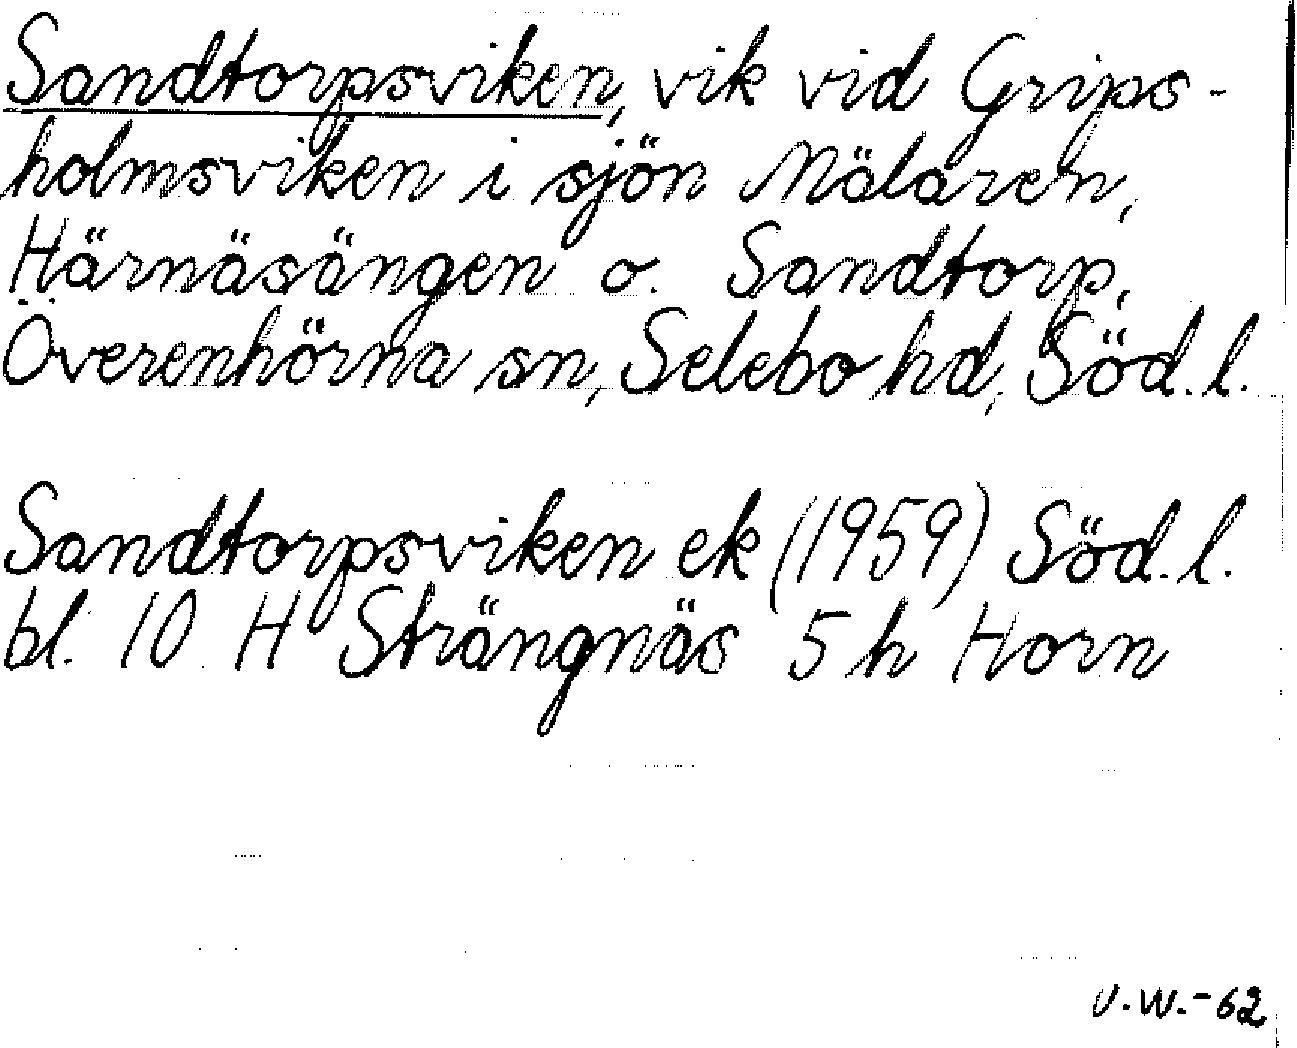 Sandtorpsviken, vik vid Grips-
holmsviken i sjön Mälaren,
Härnäsängen o. Sandtorp,
Överenhörna sn, Selebo hd, Söd. l.
Sandtorpsviken ek (1959) Söd. l.
bl. 10 H Strängnäs 5 h Horn
V.W.-62